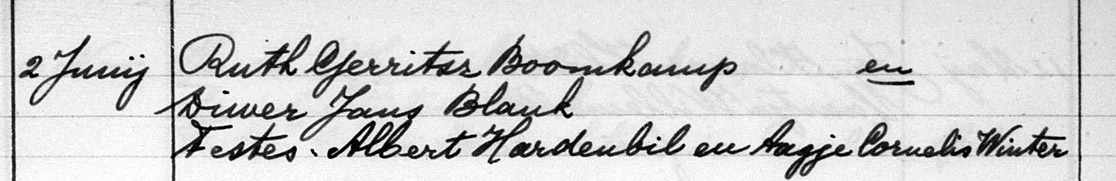 2 Junij Ruth Gerritsz Boomkamp en
Diwer Jans Blank
Testes. Albert Hardenbil en Aagje Cornelis Winter